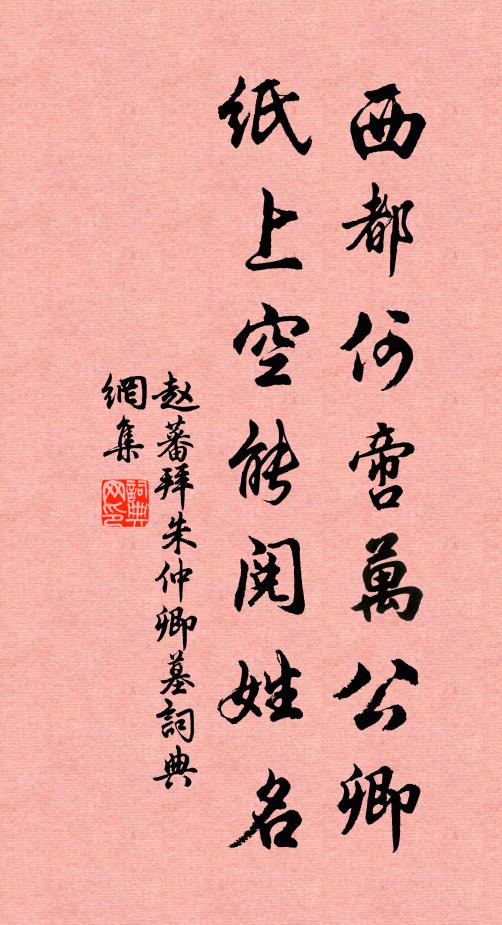 西都何啻萬公卿
紙上空能閱姓名
赵蕃拜朱仲卿墓詞典
網集
詞典網印